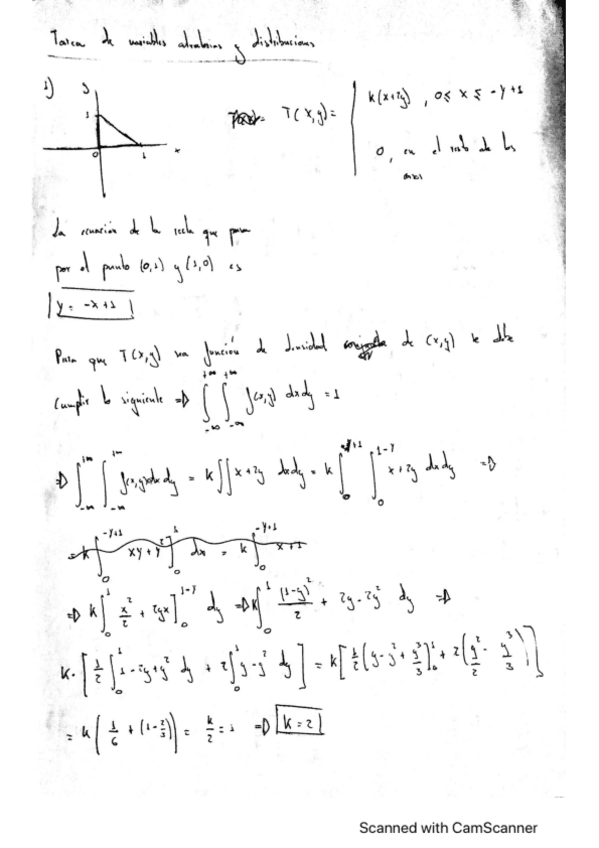 Tarea de variables aleatorias y distribuciones
1)
y
1
0
1
x
T(x,y) =
k(x+2y) , 0 ≤ x ≤ -y+1
0, en el resto de los
casos
La ecuación de la recta que pasa
por el punto (0,1) y (1,0) es
y = -x+1
Para que T(x,y) sea función de densidad de (x,y) se debe
cumplir lo siguiente => ∫_{-∞}^{+∞} ∫_{-∞}^{+∞} f(x,y) dxdy = 1
=> ∫_{-∞}^{+∞} ∫_{-∞}^{+∞} f(x,y)dxdy = k∫∫ x+2y dxdy = k ∫_0 ∫_0^{1-y} x+2y dxdy =>
= k ∫_0^{-y+1} xy + y²]_0^1 dx = k ∫_0^{-y+1} x+1
=> k ∫_0^1 x²/2 + 2yx]_0^{1-y} dy => k ∫_0^1 (1-y)²/2 + 2y - 2y² dy =>
k·[1/2 ∫_0^1 1-2y+y² dy + 2∫_0^1 y-y² dy] = k[1/2(y-y²+y³/3)]_0^1 + 2(y²/2 - y³/3)]
= k(1/6 + (1-2/3)) = k/2 = 1 => k = 2
Scanned with CamScanner